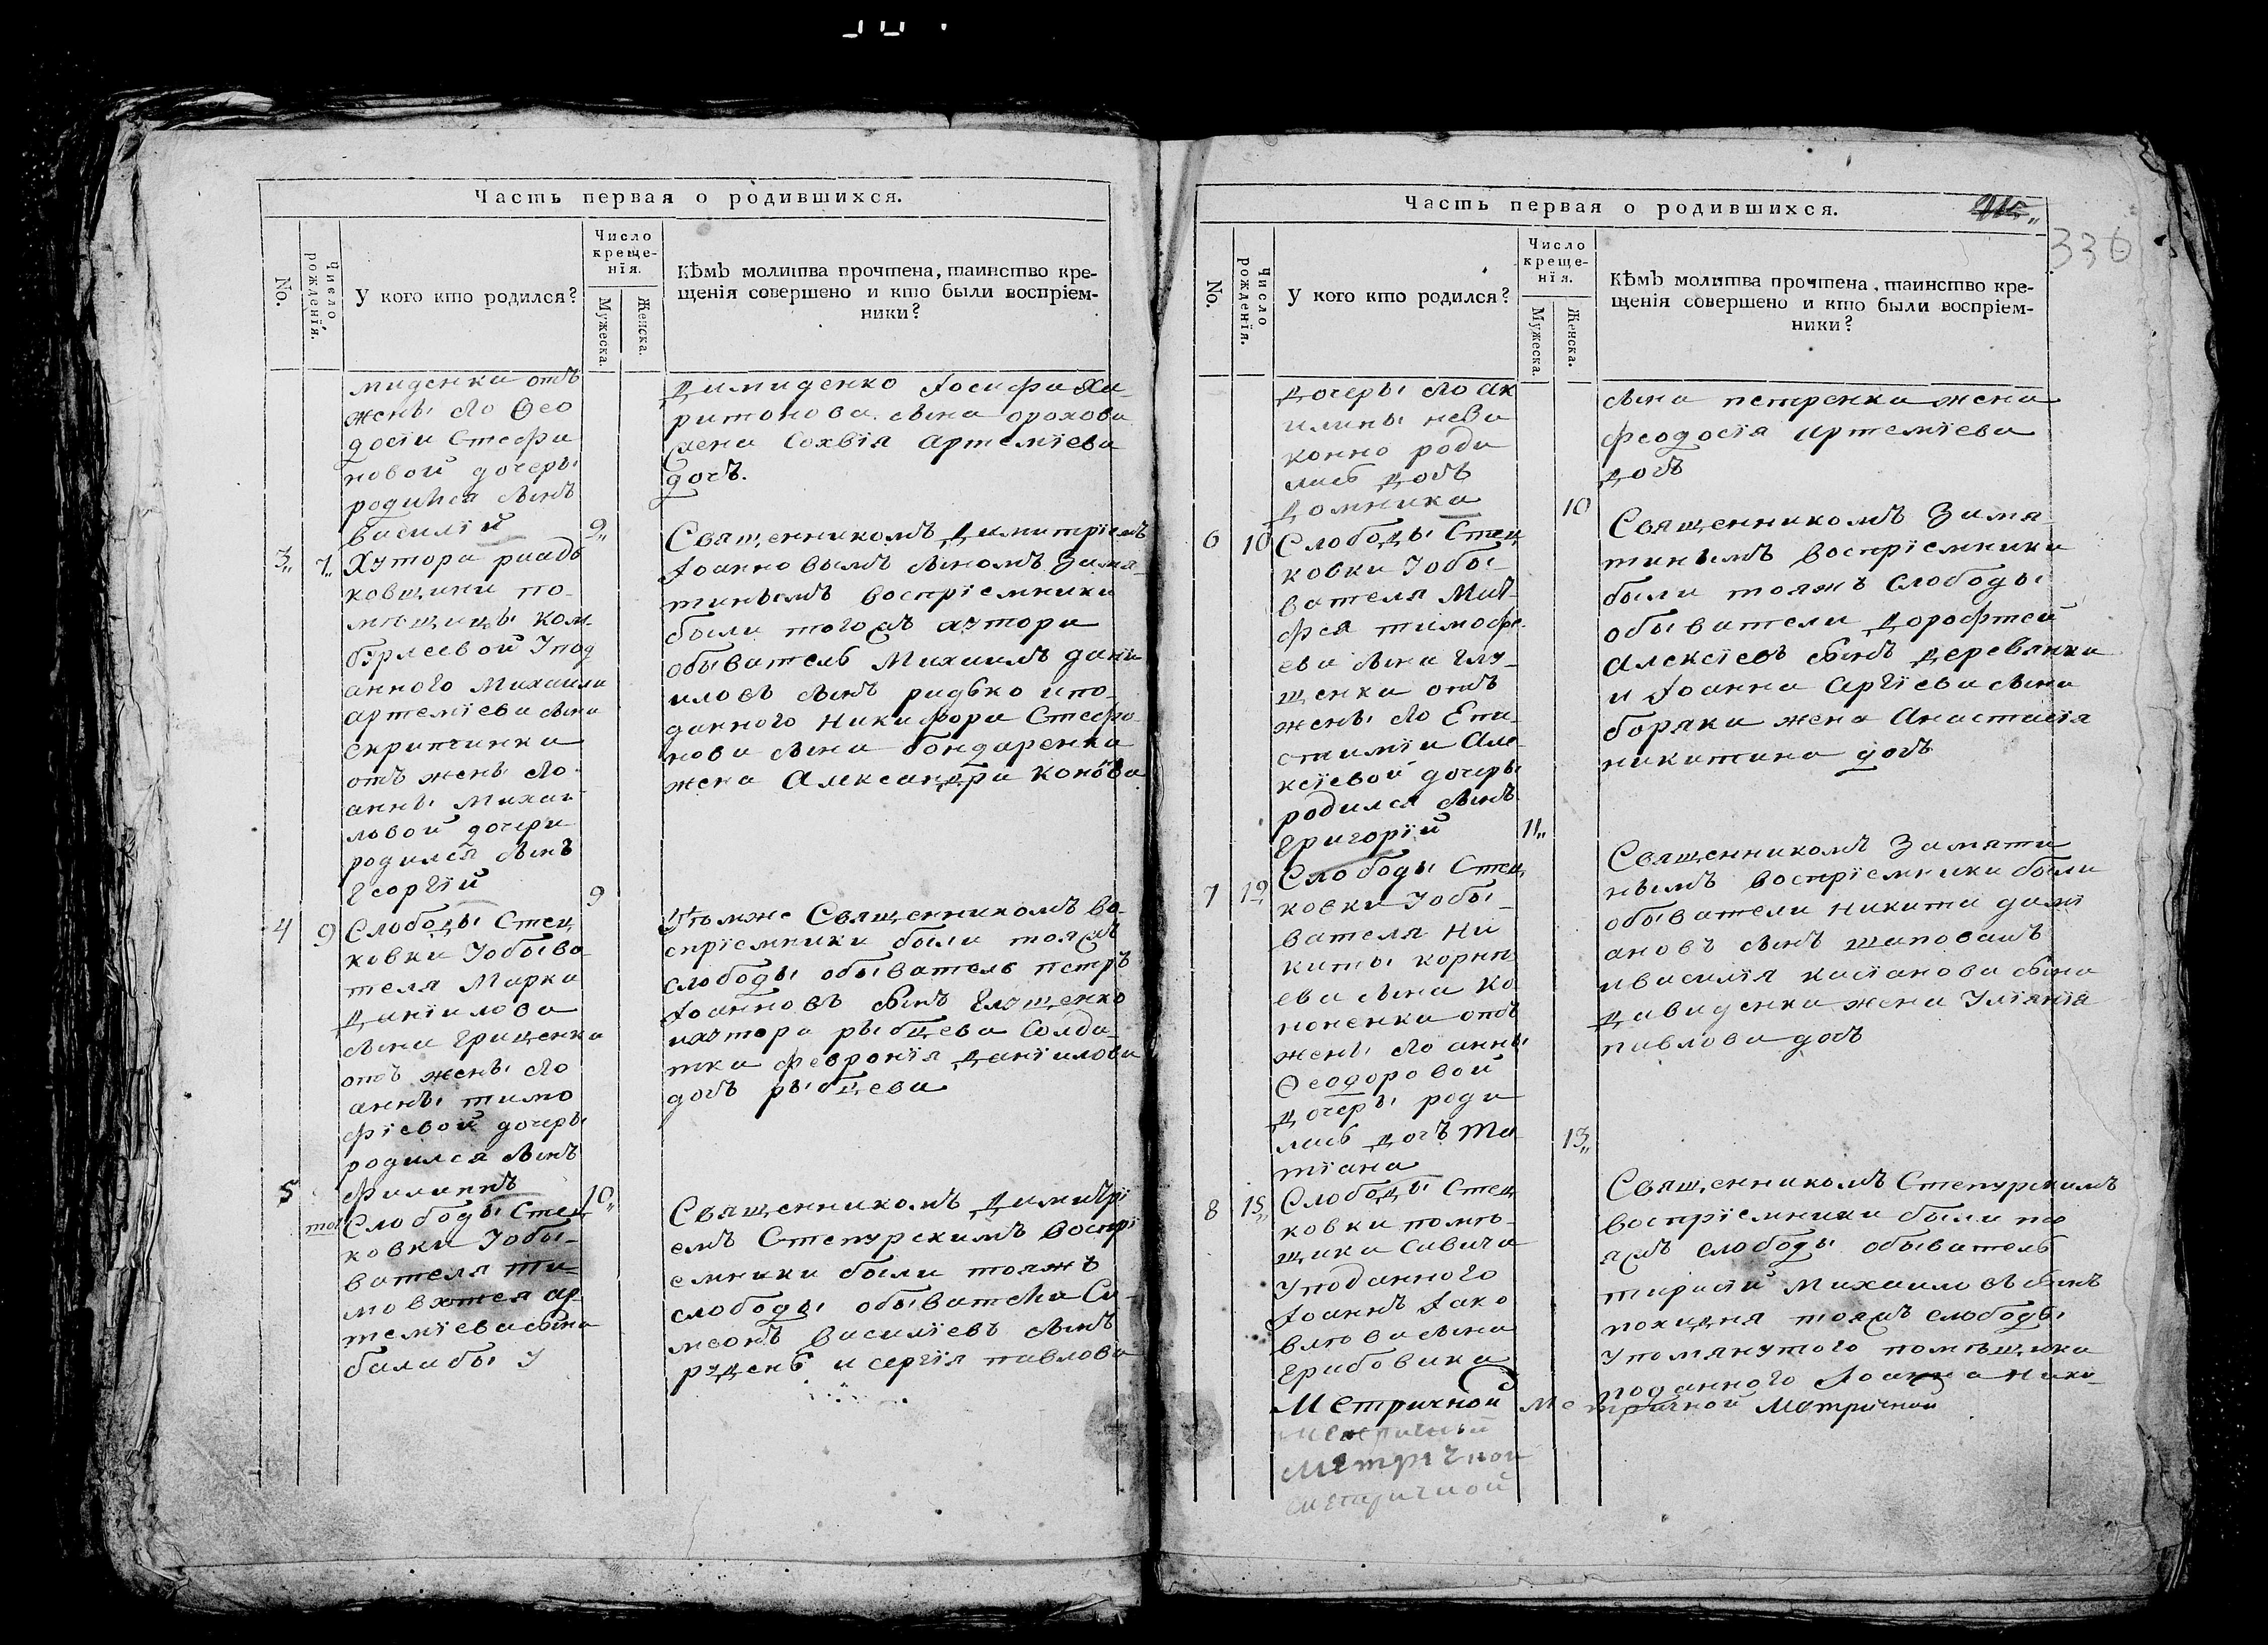 Часть первая о родившихся.
No.
Число рожденія.
У кого кто родился?
Число
креще-
нія.
Мужеска.
Женска.
Кѣмъ молитва прочтена, таинство кре-
щенія совершено и кто были воспріем-
ники?
миденка отъ
жены его Ѳео
досіи Стефа
новой дочеры
родился сынъ
василій
9
Димиденко Іосифа Ха-
ритонова сына орохова
жена Сохвія Артеміева
дочъ.
3
7
Хутора
ковщини по-
мѣщицы Ком
бурлеевой Упод
анного Михаила
артеміева сына
скрипчинка
отъ жены его
анны Михай
ловой дочери
родился сынъ
Георгій
9
Священникомъ Димитріемъ
Іоанновымъ сыномъ Замя-
тинымъ воспріемники
были тогожъ хутора
обыватель Михаилъ дані
иловъ сынъ ридько ипо-
данного Никифора Стефа-
нова сына бондаренка
жена Александра
4
9
Слободы Стец
ковки Уобыва-
теля Марка
Даніилова
сына Гриценка
отъ жены его
анны тимо
фіевой дочеры
родился сынъ
филиппъ
10
Тѣмже Священникомъ во-
спріемники были тояжъ
слободы обыватель петръ
Іоанновъ сынъ Глущенко
ихутора рыбцева Солда-
тка февронія Даніилова
дочъ рыбцева
5
Слободы Стец
ковки Уобы-
вателя ти-
артеміева сына
балабы у
Священникомъ Димитрі
емъ Степурскимъ воспрі
емники были тояжъ
слободы обыватели Си-
меонъ василіевъ сынъ
рудень и сергія павлова
Часть первая о родившихся.
336
No.
Число рожденія.
У кого кто родился?
Число
креще-
нія.
Мужеска.
Женска.
Кѣмъ молитва прочтена, таинство кре-
щенія совершено и кто были воспріем-
ники?
дочеры его Ак
илины неза
конно роди
лась дочъ
Домника
10
сына петренка жена
феодосія артеміева
дочъ
6
10
Слободы Стец
ковки Уобы-
вателя Мат-
фея тимофе-
ева сына глу-
щенка отъ
жены его Епи-
стиміи Але-
ксіевой дочеры
родился сынъ
Григорій
11
Священникомъ Замя-
тинымъ воспріемники
были тояжъ Слободы
обыватели Дорофтей
Алексіевъ сынъ деревянка
и Іоанна Сергіева сына
боряка жена Анастасія
никитина дочъ
7
12
Слободы Стец
ковки Уобы-
вателя Ни
киты корнѣ
ева сына Ко
ноненка отъ
жены его анны
Ѳеодоровой
дочеры роди
лась дочъ Та-
тіана
13
Священникомъ Замяти
нымъ воспріемники были
обыватели никита даміа
новъ сынъ шаповалъ
ивасилія касіанова сына
давиденка жена Уліянія
павлова дочъ
8
15
Слободы Стец
ковки помѣ-
щика Савича
Уподанного
Іоанна Іако
влева сына
Грибовика
Священникомъ Степурскимъ
воспріемники были то
яжъ слободы обыватель
тарасій Михаиловъ сынъ
похидня тояжъ слободы
упомянутого помѣщика
поданного Іоанна Нико-
Метричной Метричной Метричной
Метричной
Метричной
Метричной